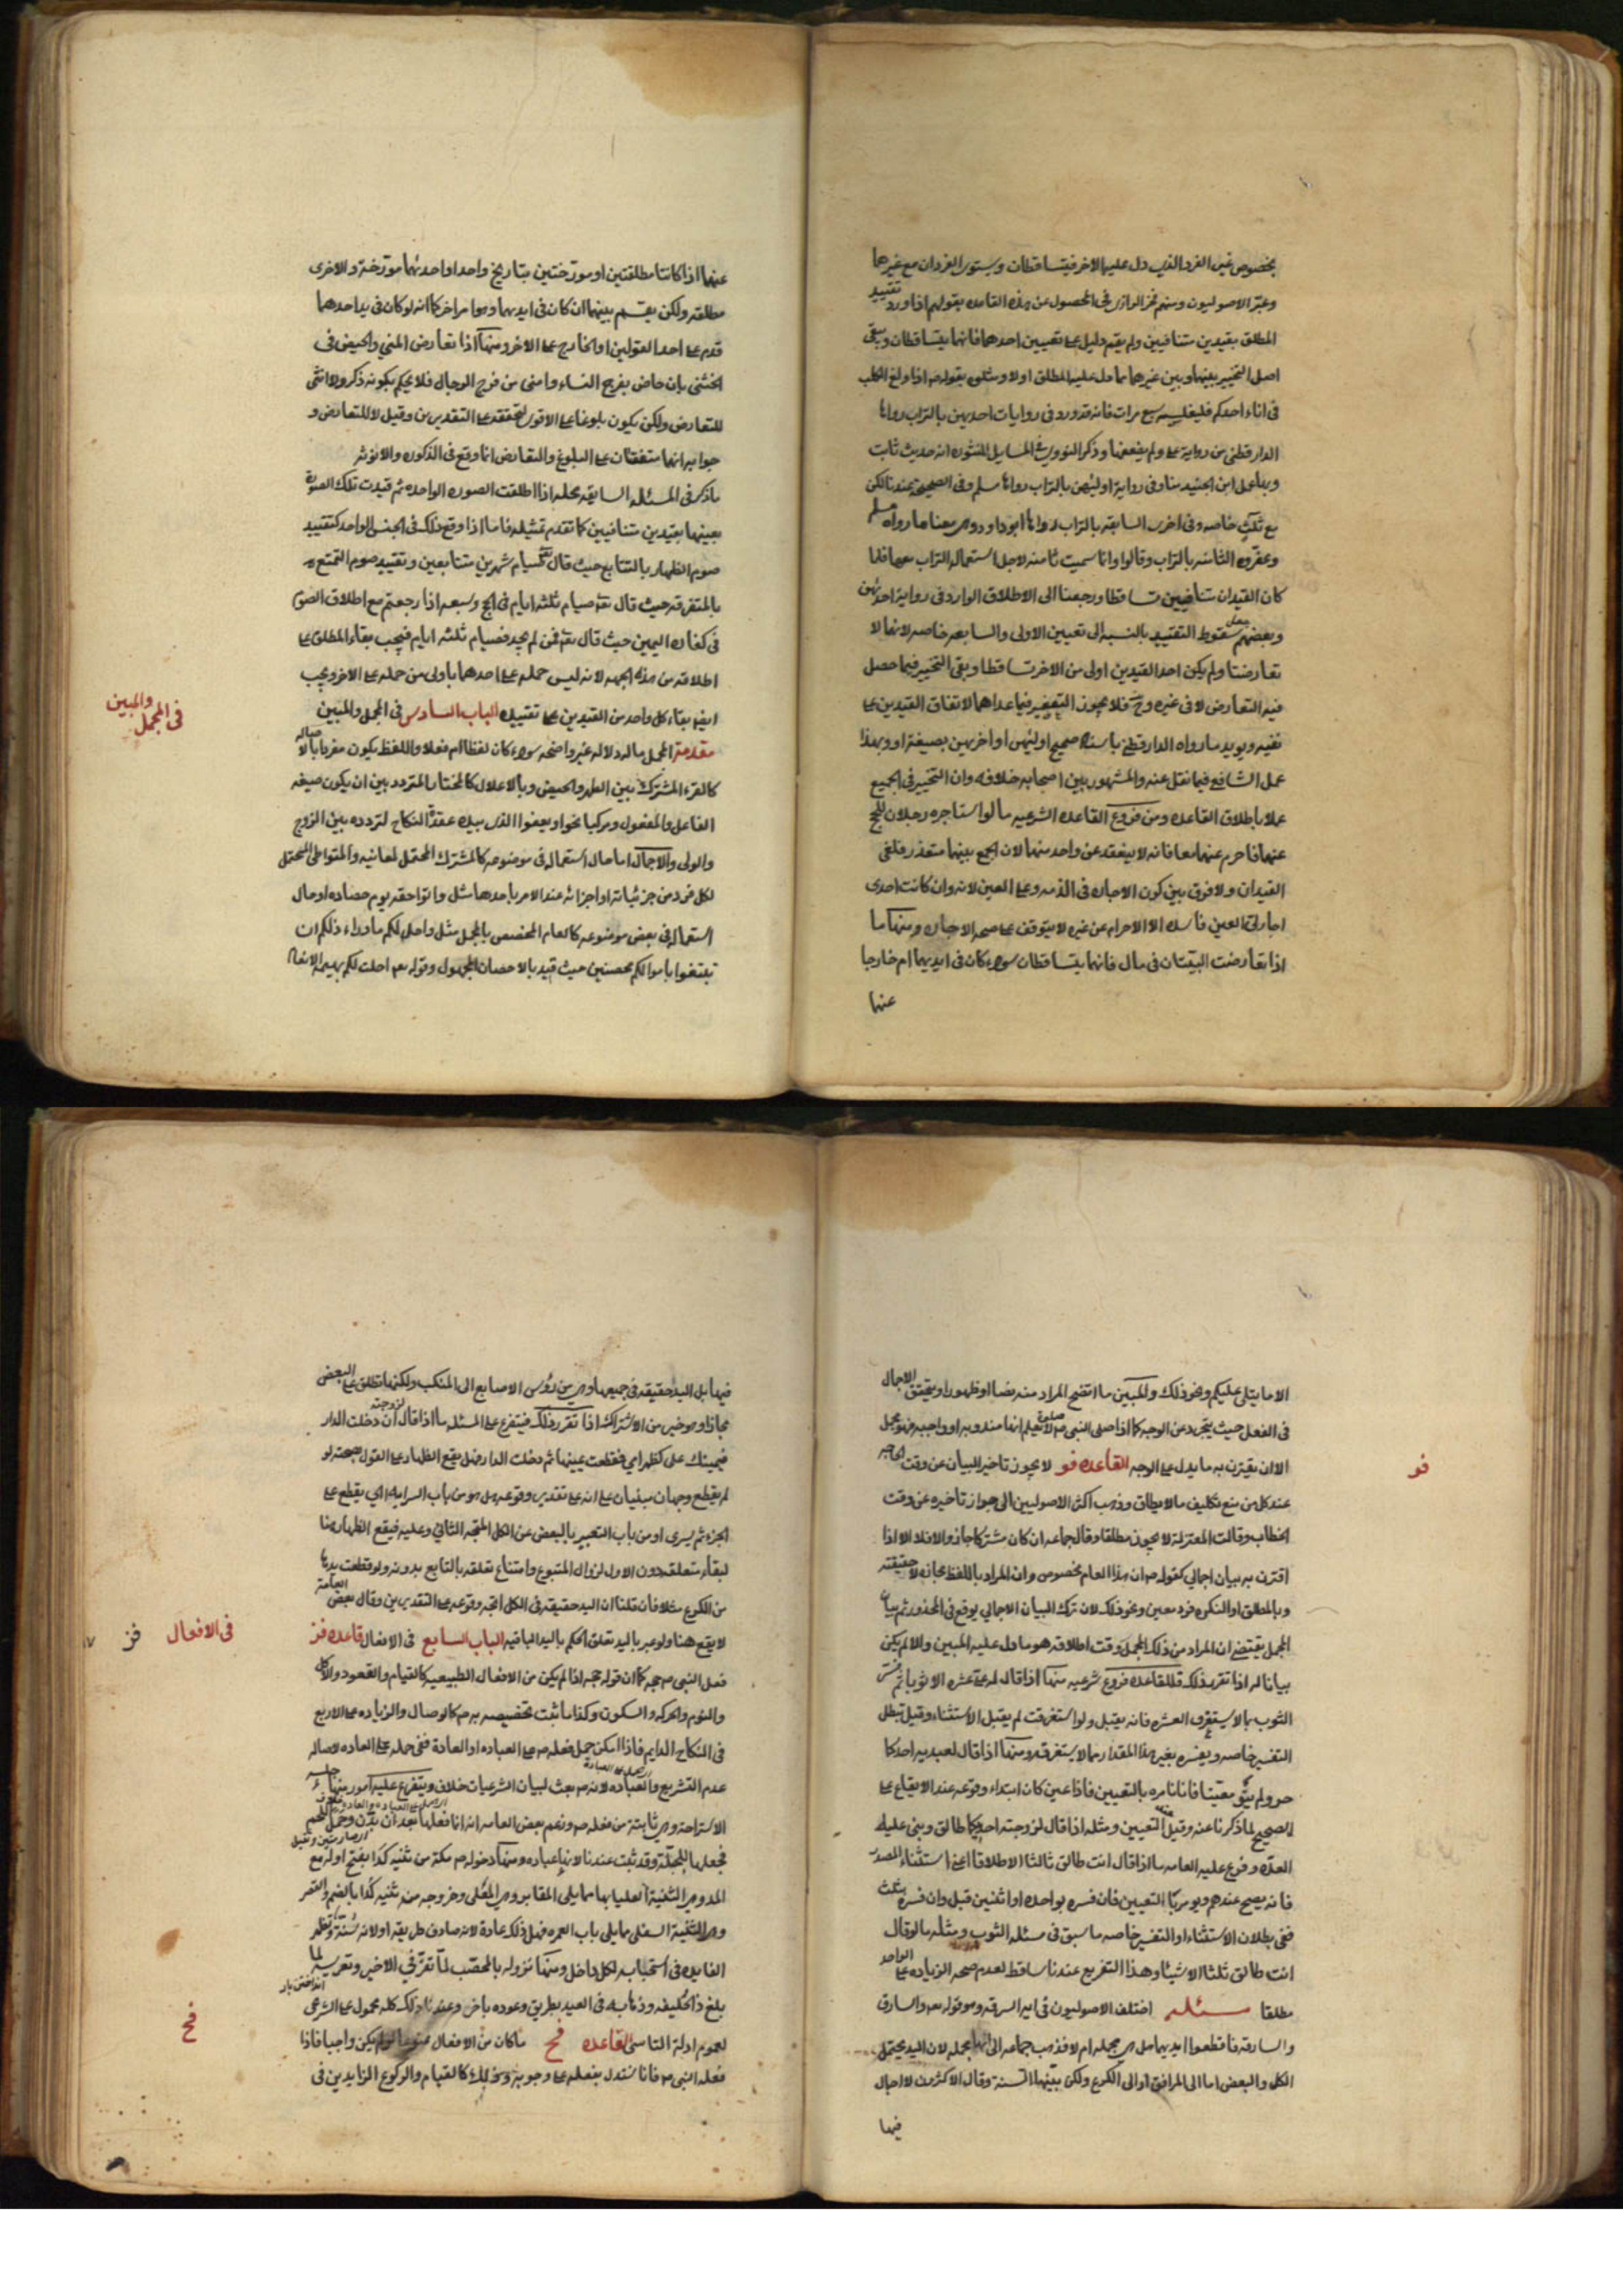 بخصوص غير الفرد الذي دل عليه الاخر فيتساقطان ويستوي الفردان مع غيرها
وعبر الاصوليون ومنهم فخر الرازي في المحصول عن هذه القاعده بقولهم اذا ورد تقييد
المطلق بقيدين متنافيين ولم يقم دليل على تعيين احدهما فانهما يتساقطان ويبقى
اصل التخيير بينهما وبين غيرهما مما دل عليه المطلق اولا ومثلوه بقوله ص اذا ولغ الكلب
في اناء احدكم فليغلسه سبع مرات فانه قد ورد في روايات احديهن بالتراب رواها
الدارقطني من رواية على ولم يضعفها وذكر النووي في المسايل المنثوره انه حديث ثابت
وبها عمل ابن الجنيد منا وفي رواية اوليهن بالتراب رواها مسلم وفي الصحيحة عندنا لكن
مع ثلث خاصه وفي اخرى السابعه بالتراب رواها ابو داود وهى معنا ما رواه مسلم
وعفروه الثامنه بالتراب وقالوا وانما سميت ثامنه لاجل استعمال التراب معها فلما
كان القيدان متنافيين تساقطا ورجعنا الى الاطلاق الوارد في رواية احديهن
وبعضهم جعل سقوط التقييد بالنسبه الى تعيين الاولى والسابعه خاصه لانهما لما
تعارضتا ولم يكن احد القيدين اولى من الاخر تساقطا وبقى التخيير فيما حصل
فيه التعارض لا في غيره وح فلا يجوز التعفير فيما عداهما لاتفاق القيدين على
نفيه ويويد ما رواه الدارقطني باسناد صحيح اوليهن او اخريهن بصيغة او وبهذا
عمل الشافعي فيما نقل عنه والمشهور بين اصحابه خلافه وان التخيير في الجميع
عملا باطلاق القاعده ومن فروع القاعده الشرعيه ما لو استاجره رجلان للحج
عنهما فاحرم عنهما معا فانه لا ينعقد عن واحد منهما لان الجمع بينهما متعذر فلغى
القيدان ولا فرق بين كون الاجاره في الذمه وعلى العين لانه وان كانت احدى
اجارتى العين فاسده الا ان الاحرام عن غيره لا يتوقف على صحه الاجاره ومنها ما
اذا تعارضت البينتان في مال فانهما يتساقطان سواء كان في ايديهما ام خارجا
عنها
عنهما اذا كانتا مطلقتين او مورختين بتاريخ واحد او احديهما مورخة والاخرى
مطلقه ولكن يقسم بينهما ان كان في ايديهما وهوا مر اخر كما انه لو كان في يد احدهما
قدم على احد القولين او الخارج على الاخر ومنها اذا تعارض المني والحيض في
الخنثى بان حاض بفرج النساء وامنى من فرج الرجال فلا يحكم بكونه ذكرا ولا انثى
للتعارض ولكن يكون بلوغا على الاقوى لتحققه على التقديرين وقيل لا للتعارض و
جوابه انهما متفقان على البلوغ والتعارض انما وقع في الذكوره والانوثه
ما ذكر في المسئله السابقه محله اذا اطلقت الصوره الواحده ثم قيدت تلك الصوره
بعينها بقيدين متنافيين كما تقدم تمثيله فاما اذا وقع ذلك في الجنس الواحد كتقييد
صوم الظهار بالتتابع حيث قال تع فصيام شهرين متتابعين وتقييد صوم التمتع
بالمتفرقه حيث قال تع صيام ثلثه ايام في الحج وسبعه اذا رجعتم مع اطلاق الصوم
في كفاره اليمين حيث قال تع فمن لم يجد فصيام ثلثه ايام فيجب بقاء المطلق على
اطلاقه من هذه الجهه لانه ليس حمله على احدهما باولى من حمله على الاخر ويجب
ايضا بقاء كل واحد من القيدين على تقييده الباب السادس في المجمل والمبين
في المجمل والمبين
مقدمة المجمل ما له دلاله غير واضحه سواء كان لفظا ام فعلا واللفظ يكون مفردا بالاصاله
كالقرء المشترك بين الطهر والحيض وبالاعلال كالمختار المتردد بين ان يكون صيغه
الفاعل والمفعول ومركبا نحو او يعفوا الذي بيده عقدة النكاح لتردده بين الزوج
والولى والاجمال اما حال استعماله في موضوعه كالمشترك المحتمل لمعانيه والمتواطى المحتمل
لكل فرد من جزئياته او اجزائه عند الامر باحدها مثل واتوا حقه يوم حصاده او حال
استعماله في بعض موضوعه كالعام المخصص بالمجمل مثل واحل لكم ما وراء ذلكم ان
تبتغوا باموالكم محصنين حيث قيد بالاحصان المجهول وقوله تع احلت لكم بهيمه الانعام
الا ما يتلى عليكم ونحو ذلك والمبين ما اتضح المراد منه نصا او ظهورا ويتحقق الاجمال
في الفعل حيث يتجرد عن الوجه كما اذا صلى النبي ص صلوة لا نعلم انها مندوبه او واجبه فهو مجمل
الا ان يقترن به ما يدل على الوجه القاعده فو لا يجوز تاخير البيان عن وقت الحاجه
فو
عند كل من منع تكليف ما لا يطاق وذهب اكثر الاصوليين الى جواز تاخيره عن وقت
الخطاب وقالت المعتزلة لا يجوز مطلقا وقال جماعه ان كان مشتركا جاز والا فلا الا اذا
اقترن به بيان اجمالى كقوله ص ان هذا العام مخصوص وان المراد باللفظ مجازه لا حقيقته
وبالمطلق او النكره فرد معين ونحو ذلك لان ترك البيان الاجمالي يوقع في المحذور ثم بيان
المجمل يقتضي ان المراد من ذلك المجمل وقت اطلاقه هو ما دل عليه المبين والا لم يكن
بيانا له اذا تقرر ذلك فللقاعده فروع شرعيه منها اذا قال له على عشره الا ثوبا ثم فسر
الثوب بما لا يستغرق العشره فانه يقبل ولو استغرقت لم يقبل الاستثناء وقيل تبطل
التفسير خاصه ويفسره بغير هذا المقدار مما لا يستغرقه ومنها اذا قال لعبديه احدكما
حر ولم ينو معينا فانا نامره بالتعيين فاذا عين كان ابتداء وقوعه عند الايقاع على
الصحيح لما ذكرنا عنه وقيل عند التعيين ومثله اذا قال لزوجته احديكما طالق وبنى عليه
العده وفرع عليه العامه ما اذا قال انت طالق ثالثا الا طلاقا اعني استثناء المصدر
فانه يصح عندهم ويومر بالتعيين فان فسره بواحده او اثنين قبل وان فسره بثلث
ففي بطلان الاستثناء او التفسير خاصه ما سبق في مسئله الثوب ومثله ما لو قال
انت طالق ثلثا الا شيئا وهذا التفريع عندنا ساقط لعدم صحه الزياده على الواحد
مطلقا مسئله اختلف الاصوليون في ايه السرقه وهو قوله تع والسارق
والسارقه فاقطعوا ايديهما هل هى مجمله ام لا فذهب جماعه الى انها مجمله لان اليد يحتمل
الكل والبعض اما الى المرافق او الى الكوع ولكن بينها السنة وقال الاكثرون لا اجمال
فيها
فيها بل اليد حقيقه في جميعها وهى من رؤس الاصابع الى المنكب ولكنها تطلق على البعض
مجازا وهو خير من الاشتراك اذا تقرر ذلك فيتفرع على المسئله ما اذا قال لزوجته ان دخلت الدار
فيمينك على كظهر امي فقطعت يمينها ثم دخلت الدار فهل يقع الظهار على القول بصحته لو
لم يقطع وجهان مبنيان على انه على تقدير وقوعه هل هو من باب السرايه اي يقع على
الجزء ثم يسرى او من باب التعبير بالبعض عن الكل المتجه الثاني وعليه فيقع الظهار هنا
لبقاء متعلقه دون الاول لزوال المتبوع وامتناع تعلقه بالتابع بدونه ولو قطعت يدها
من الكوع مثلا فان قلنا ان اليد حقيقه في الكل اتجه وقوعه على التقديرين وقال بعض العامة
لا يقع هنا ولو عبر باليد تعلق الحكم باليد الباقيه الباب السابع في الافعال قاعده فز
في الافعال فز
فعل النبي ص حجه كما ان قوله حجه اذا لم يكن من الافعال الطبيعيه كالقيام والقعود والاكل
والنوم والحركه والسكون وكذا ما ثبت تخصيصه به ص كالوصال والزياده على الاربع
في النكاح الدايم فاذا امكن حمل فعله ص على العباده او العادة ففي حمله على العاده لاصاله
عدم التشريع والعباده لانه ص بعث لبيان الشرعيات خلاف ويتفرع عليه امور منها جلسه
الاستراحة وهى ثابتة من فعله ص وزعم بعض العامه انه انما فعلها بعد ان بدن وحمل اللحم
فجعلها للجبلة وقد ثبت عندنا لانها عباده ومنها دخوله ص مكة من ثنيه كدا بفتح اوله مع
المد وهى الثنية العليا بها مما يلى المقابر وهى المعلى وخروجه من ثنيه كدا بالضم والقصر
وهى الثنية السفلى مما يلى باب العمره فهل ذلك عادة لانه صادف طريقه او لانه سنة وتظهر
الفايده في استحبابه لكل داخل ومنها نزوله بالمحصب لما تعزز في الاخير وتعريسه لما
بلغ ذا الحليفه وذهابه في العيد بطريق وعوده باخر وعندنا ان ذلك كله محمول على الشرعى
لعموم ادلة التاسي القاعده فح ما كان من الافعال ممنوعا لو لم يكن واجبا فاذا
فح
فعله النبي ص فانا نستدل بفعله على وجوبه وذلك كالقيام والركوع الزايدين في